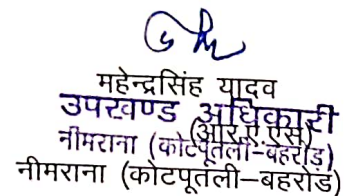 महेन्द्रसिंह यादव
उपखण्ड अधिकारी
(आर.ए.एस)
नीमराना (कोटपूतली-बहरोड़)
नीमराना (कोटपूतली-बहरोड़)